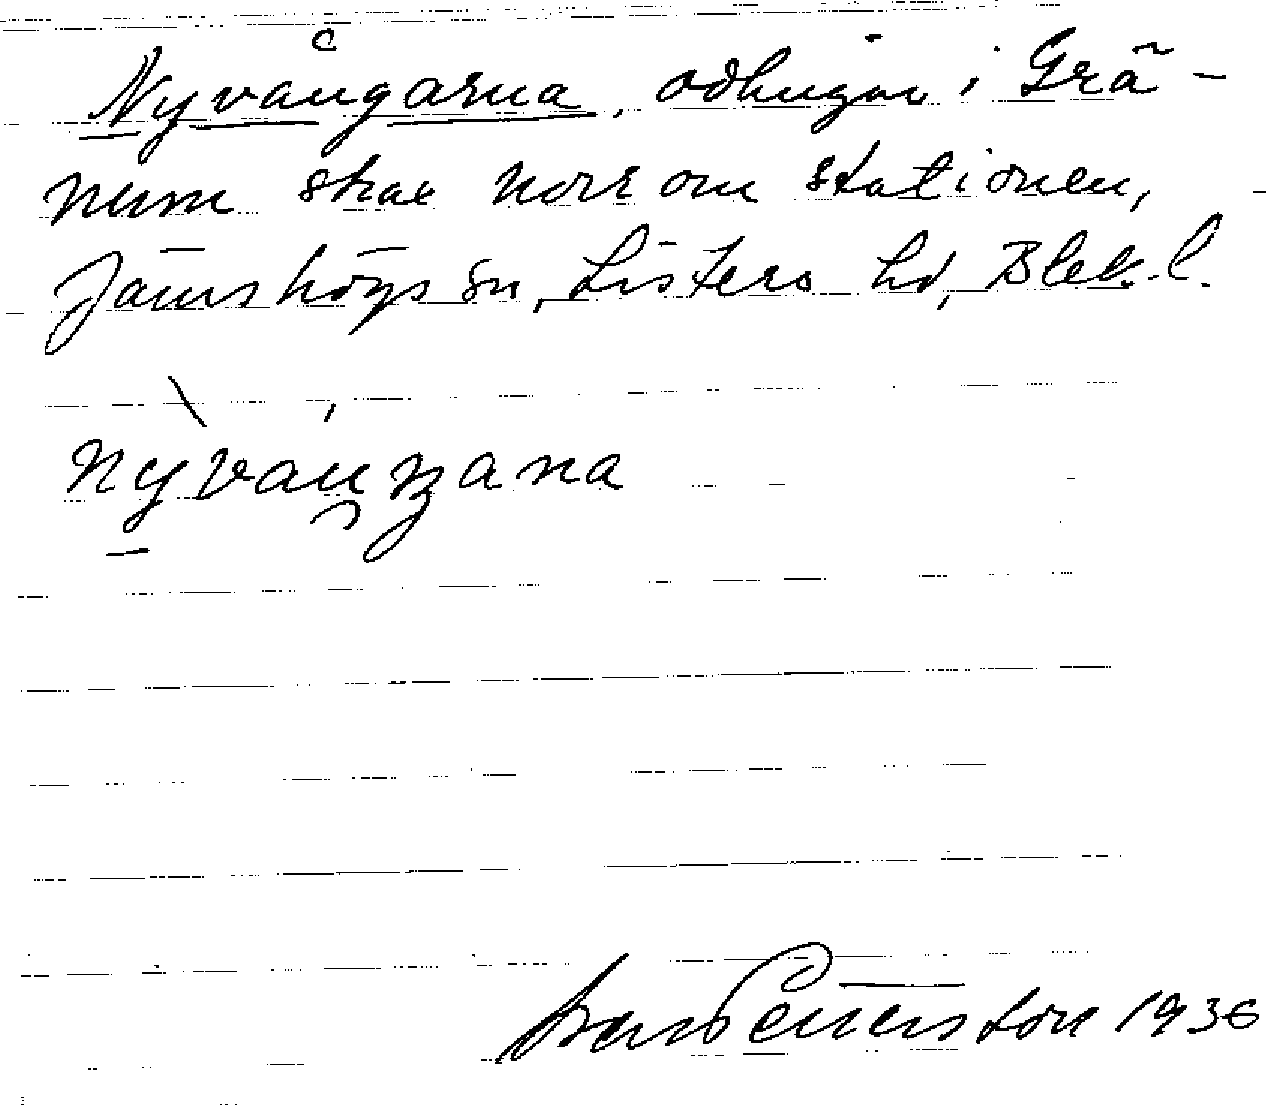 Nyvångarna, odlingar i Grä-
num strax norr om stationen,
Jämshögs sn, Listers hd, Blek. l.
nyvaŋgana
Pettersson 1936